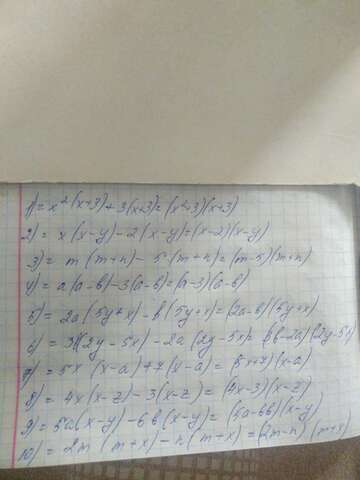 1) = x²(x+3)+3(x+3)=(x²+3)(x+3)
2) = x(x-y)-2(x-y)=(x-2)(x-y)
3) = m(m+n)-5(m+n)=(m-5)(m+n)
4) = a(a-b)-3(a-b)=(a-3)(a-b)
5) = 2a(5y+x)-b(5y+x)=(2a-b)(5y+x)
6) = (2y-5x)-2a(2y-5x)=(3b-2a)(2y-5x)
7) = 5x(x-a)+7(x-a)=(5x+7)(x-a)
8) = 4x(x-z)-3(x-z)=(4x-3)(x-z)
9) = 5a(x-y)-6b(x-y)=(5a-6b)(x-y)
10) = 2m(m+x)-n(m+x)=(2m-n)(m+x)